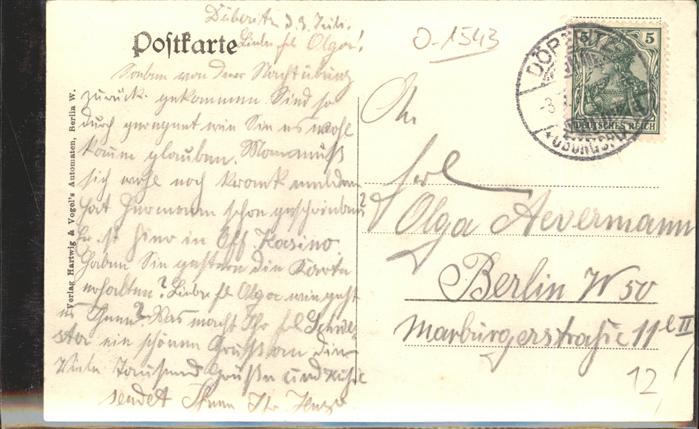 Döberitz d. 3. Juli.
Postkarte
Liebe frl Olga!
Soeben von der Nachtübung
zurück gekommen. Sind so
durch geregnet wie Sie es wohl
kaum glauben. Man muß
sich wohl noch krank melden
hat Hermann schon geschrieben?
Er ist hier in Off Kasino
Haben Sie gestern die Karte
erhalten? Liebe frl Olga wie geht
es Ihnen? Was macht Ihr frl Schwe-
ster ein schönen Gruß an die
Viele Tausend Grüße und Küsse
sendet Ihnen Ihr
Verlag Hartwig & Vogel's Automaten, Berlin W.
D-1543
DÖBERITZ
-3.
5 5
DEUTSCHES REICH
An
Frl
Olga Aevermann
Berlin W 50
Marburgerstraße 11 II
12